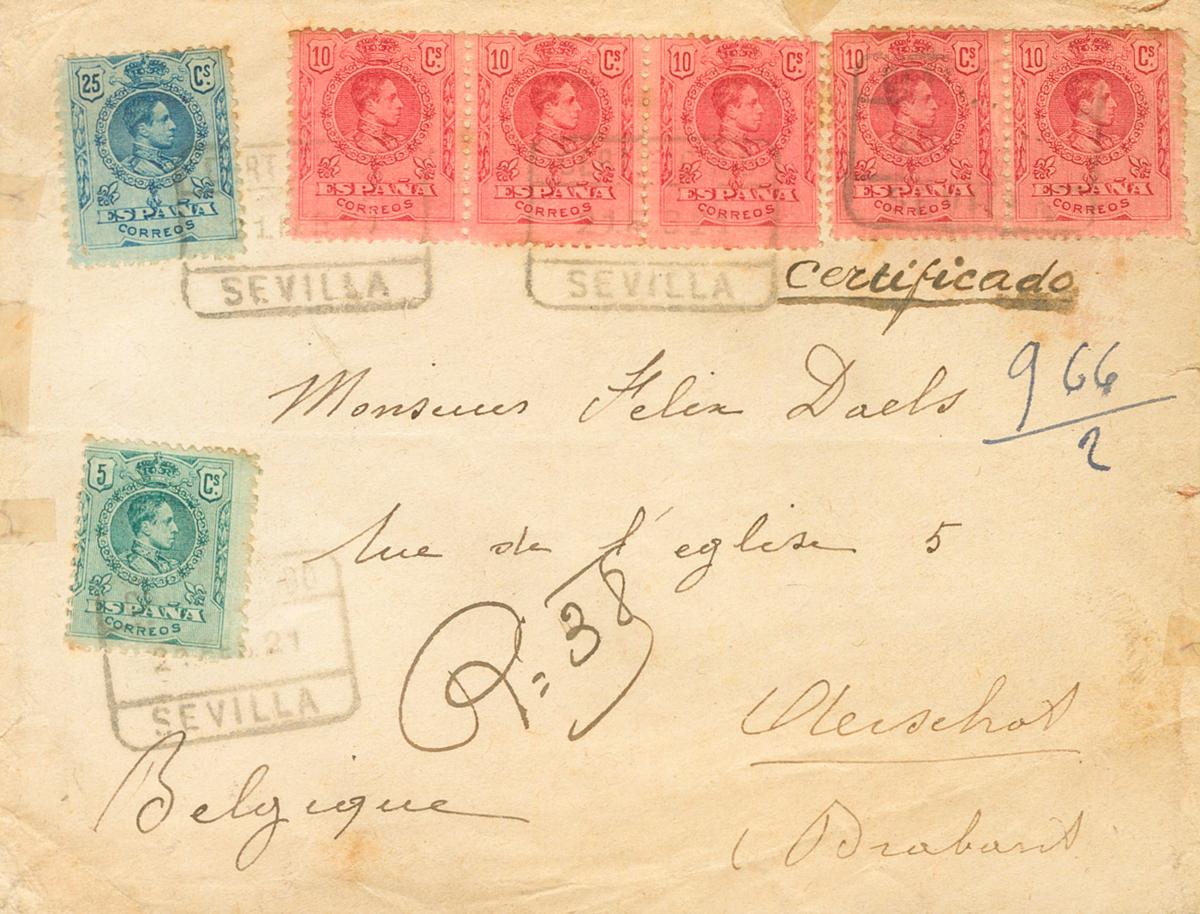 25 Cs.
ESPAÑA
CORREOS
10 Cs.
ESPAÑA
CORREOS
10 Cs.
ESPAÑA
CORREOS
10 Cs.
ESPAÑA
CORREOS
10 Cs.
ESPAÑA
CORREOS
10 Cs.
ESPAÑA
CORREOS
SEVILLA
SEVILLA
Certificado
Monsieur Felix Daels
966
2
5 Cs.
ESPAÑA
CORREOS
Rue de l'eglise 5
21
SEVILLA
R = 38
Aerschot
Belgique
Brabant